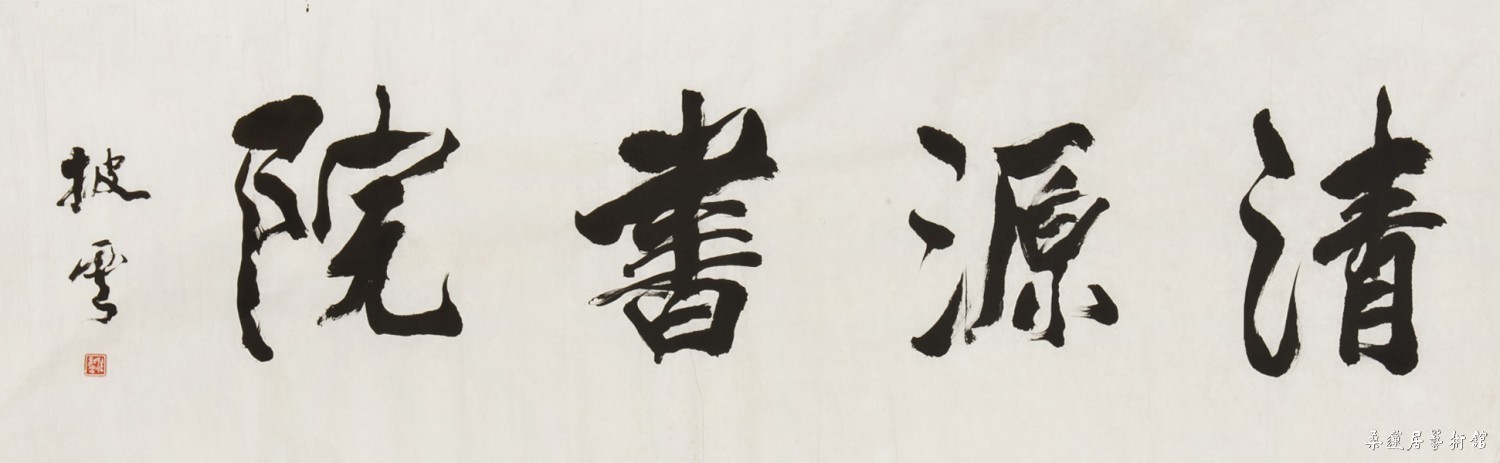 清源書院
披雲
桑蓮居藝術館